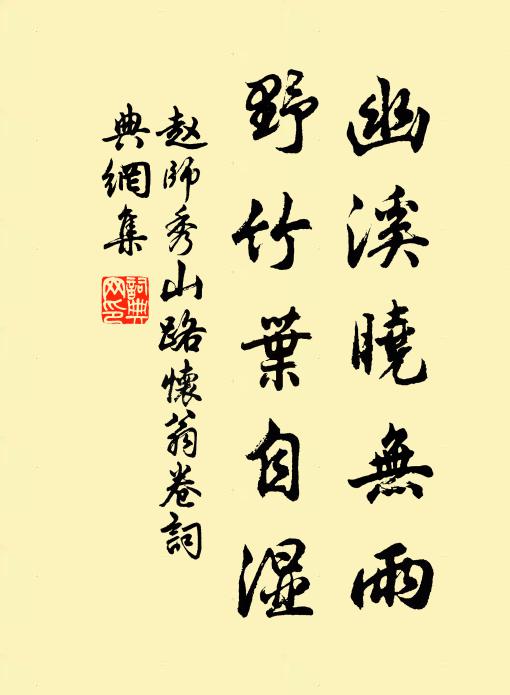 幽溪曉無雨
野竹葉自濕
趙師秀山路懷翁卷詞
典網集
詞典
网印